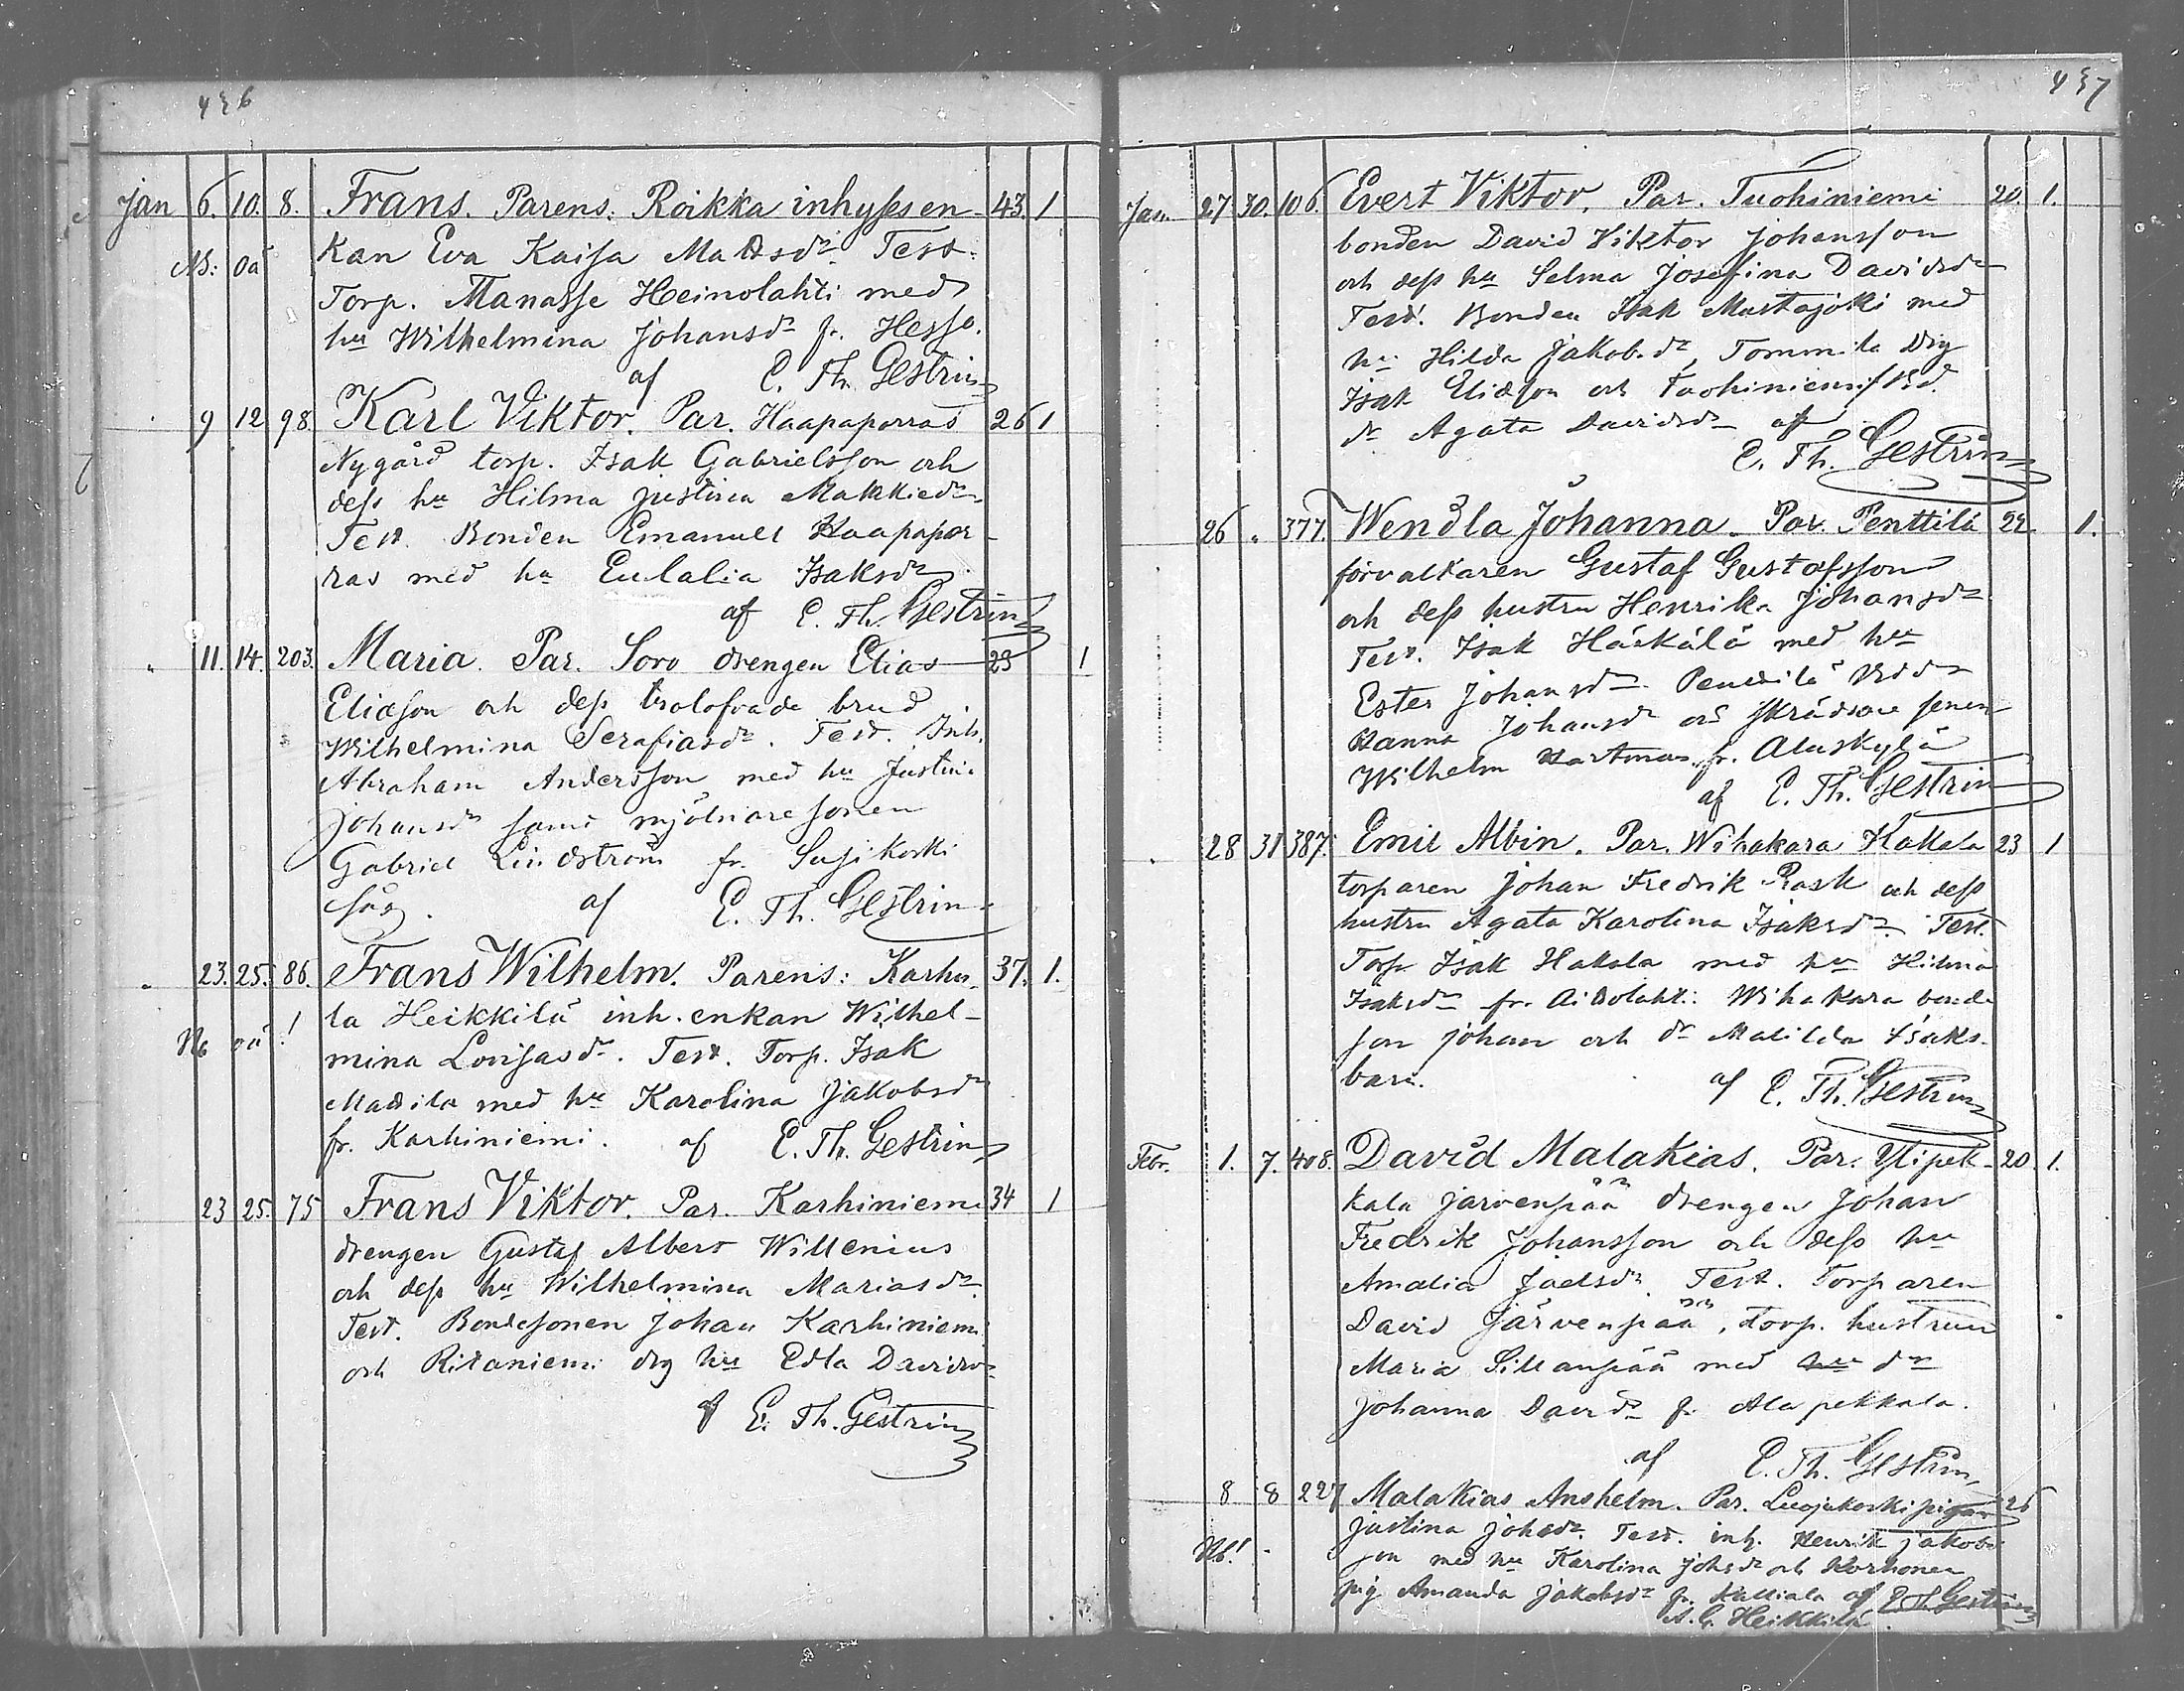 436
Jan 6. 10. 8. Frans. Parens: Roikka inhysesen- 43. 1
NB: oä kan Eva Kaisa Mattsdr. Test.
Torp. Manasse Heinolahti med
hu Wilhelmina Johansdr fr. Hesso.
af E. Th. Gestrin
9 12 98. Karl Viktor. Par. Haapaporras 26 1
Nygård torp. Isak Gabrielsson och
dess hu Hilma Justina Malkiedr
Test. Bonden Emanuel Haapapor-
ras med hu Eulalia Isaksdr
af E. Th. Gestrin
11. 14. 203. Maria. Par. Soro drengen Elias 29 1
Eliasson och dess trolofvade brud
Wilhelmina Serafiasdr. Test. Inh.
Abraham Andersson med hu Justina
Johansdr samt mjölnaresonen
Gabriel Lindström fr. Susikoski
såg. af E. Th. Gestrin
23. 25. 86. Frans Wilhelm. Parens: Karhu- 37. 1.
Nb oä! la Heikkilä inh. enkan Wilhel-
mina Lovisasdr. Test. Torp. Isak
Mattila med hu Karolina Jakobsdr
fr. Karhiniemi. af E. Th. Gestrin
23 25. 75 Frans Viktor. Par. Karhiniemi 34 1
drengen Gustaf Albert Willenius
och dess hu Wilhelmina Mariasdr
Test. Bondesonen Johan Karhiniemi
och Ritaniemi drg hu Edla Davidsdr
af E. Th. Gestrin
437
Jan. 27 30. 106. Evert Viktor. Par. Tuohiniemi 20. 1.
bonden David Viktor Johansson
och dess hu Selma Josefina Davidsdr
Test. Bonden Isak Mustajoki med
hu Hilda Jakobsdr, Tommila drg
Isak Eliasson och Tuohiniemi
dr Agata Davidsdr af
E. Th. Gestrin
26 . 377. Wendla Johanna. Par. Penttilä 22 1.
förvaltaren Gustaf Gustafsson
och dess hustru Henrika Johansdr
Test. Isak Härkälä med hu
Ester Johansdr. Penttilä
Hanna Johansdr och skräddaresonen
Wilhelm Hartman fr. Alaskylä
af E. Th. Gestrin
28 31 387. Emil Albin. Par. Wihakara Hakala 23 1
torparen Johan Fredrik Rask och dess
hustru Agata Karolina Isaksdr. Test.
Torp Isak Hakala med hu Hilma
Isaksdr fr. Aittolahti. Wihakara bonde-
son Johan och dr Matilda Isaks-
barn. af E. Th. Gestrin
Febr. 1. 7. 408. David Malakias. Par. Ylipek- 20. 1.
kala Järvenpää drengen Johan
Fredrik Johansson och dess hu
Amalia Joelsdr. Test. Torparen
David Järvenpää, torp. hustrun
Maria Sillanpää med hu dr
Johanna Davdr fr. Alapekkala.
af E. Th. Gestrin
8 8 227 Malakias Anshelm. Par. Luojukoski pigan 25
Nb! Justina Johsdr. Test. inh. Henrik Jakobs-
son med hu Karolina Johsdr och Korhonen
pig Amanda Jakobsdr fr. Kalliala af E. Th. Gestrin
A. G. Heikkilä.